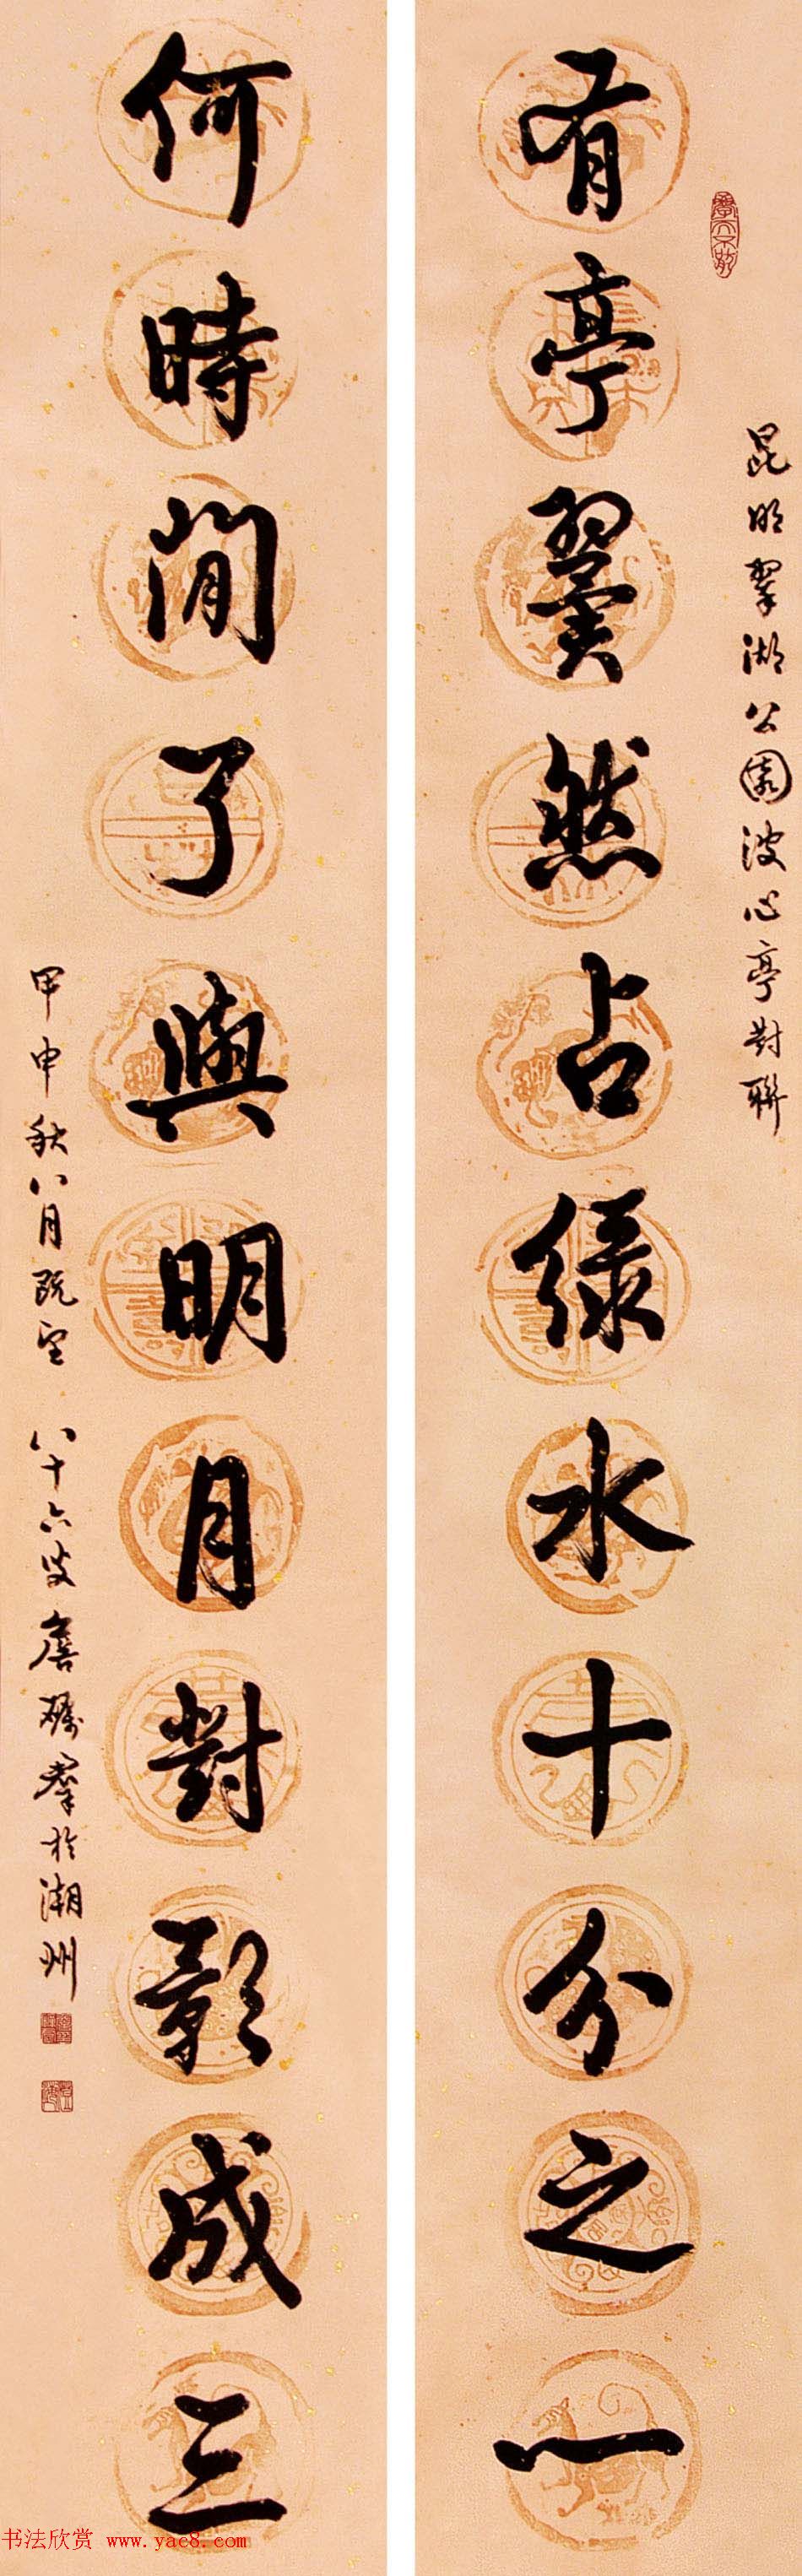 昆明翠湖公園波心亭對聯
有亭翼然占绿水十分之一
何時閒了與明月對影成三
甲申秋八月既望 八十六叟詹砺羣於潮州
书法欣赏 www.yac8.com